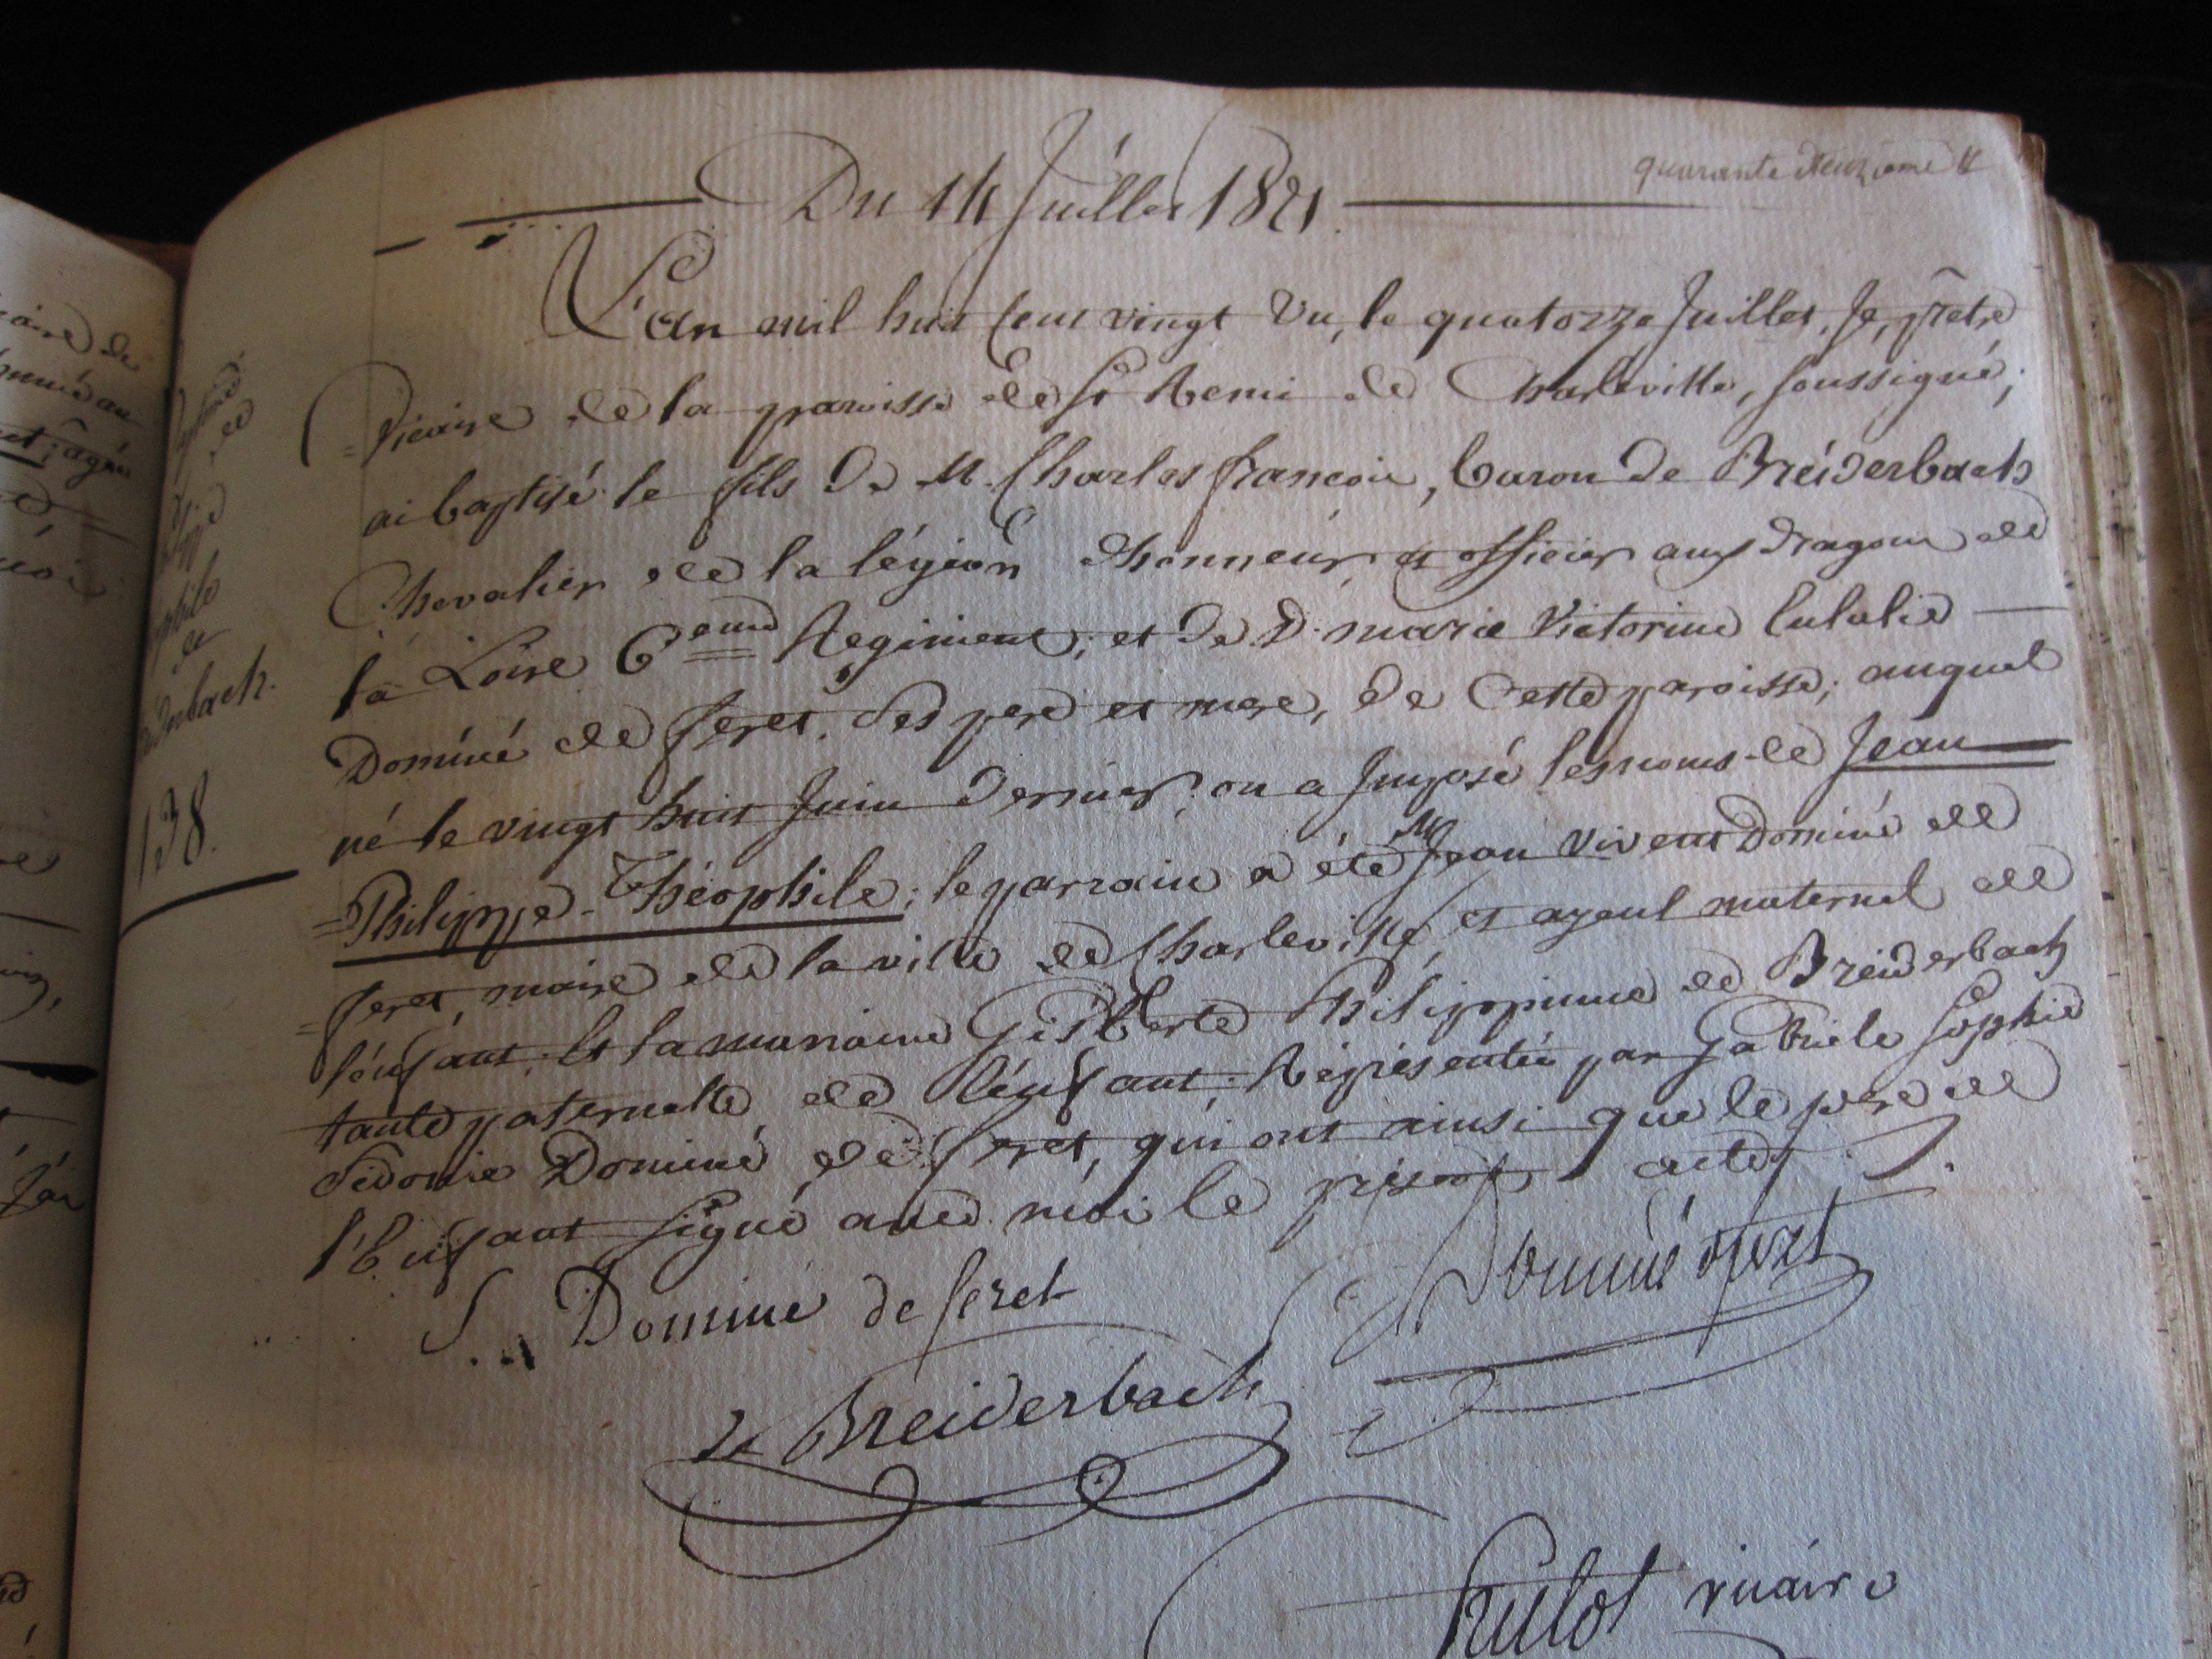 quarante deuxieme
Du 14 Juillet 1821.
L'an mil huit Cent vingt Un, le quatorze Juillet, Je, prêtre
Vicaire de la paroisse de St Remi de Charleville, soussigné,
ai baptisé le fils de M. Charles françois, baron de Bréiderbach
Chevalier de la légion d'honneur et officier aux dragons de
la Loire 6eme Regiment; et de D. marie Victorine Eulalie
Dominé de feret, ses pere et mere, de Cette paroisse; auquel
né le vingt huit Juin dernier, on a Imposé les noms de Jean
=Philippe-Théophile; le parrain a été M Jean Vivent Dominé de
=feret, maire de la ville de Charleville, et ayeul maternel de
l'énfant; Et la marraine Gisberte Philippinne de Breiderbach
tante paternelle de l'énfant; Représentée par Gabriele Sophie
Sidonie Dominé de feret, qui ont ainsi que le pere de
l'Enfant signé avec moi le présent acte.
S. Dominé de feret
Dominé dferet
de Breiderbach
hulot vicaire
de
de
de
138.